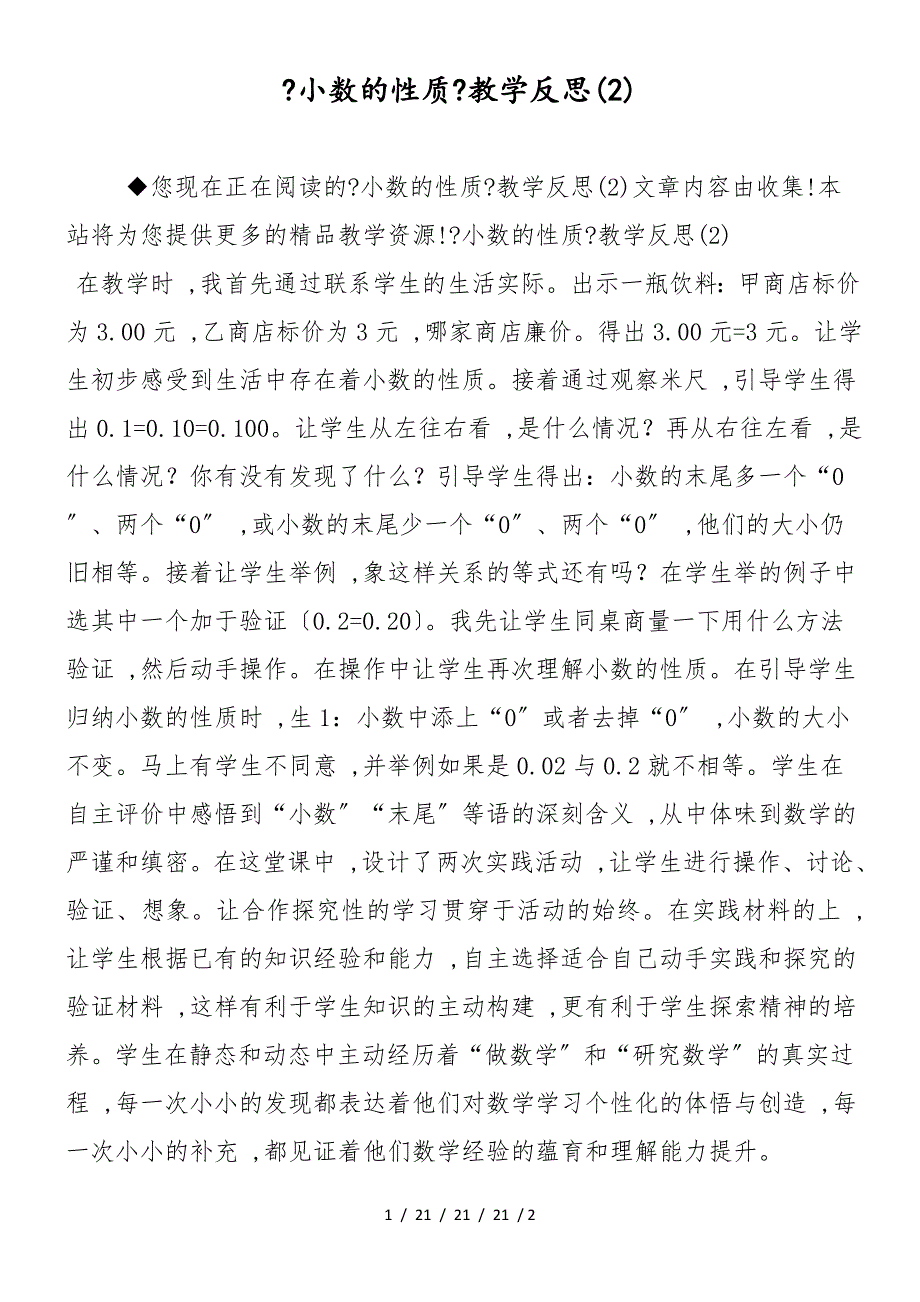 ?小数的性质?教学反思(2)
◆您现在正在阅读的?小数的性质?教学反思(2)文章内容由收集!本
站将为您提供更多的精品教学资源!?小数的性质?教学反思(2)
在教学时 ,我首先通过联系学生的生活实际。出示一瓶饮料：甲商店标价
为 3.00 元 ,乙商店标价为 3 元 ,哪家商店廉价。得出 3.00 元=3 元。让学
生初步感受到生活中存在着小数的性质。接着通过观察米尺 ,引导学生得
出 0.1=0.10=0.100。让学生从左往右看 ,是什么情况？再从右往左看 ,是
什么情况？你有没有发现了什么？引导学生得出：小数的末尾多一个“0
〞、两个“0〞 ,或小数的末尾少一个“0〞、两个“0〞 ,他们的大小仍
旧相等。接着让学生举例 ,象这样关系的等式还有吗？在学生举的例子中
选其中一个加于验证〔0.2=0.20〕。我先让学生同桌商量一下用什么方法
验证 ,然后动手操作。在操作中让学生再次理解小数的性质。在引导学生
归纳小数的性质时 ,生 1：小数中添上“0〞或者去掉“0〞 ,小数的大小
不变。马上有学生不同意 ,并举例如果是 0.02 与 0.2 就不相等。学生在
自主评价中感悟到“小数〞“末尾〞等语的深刻含义 ,从中体味到数学的
严谨和缜密。在这堂课中 ,设计了两次实践活动 ,让学生进行操作、讨论、
验证、想象。让合作探究性的学习贯穿于活动的始终。在实践材料的上 ,
让学生根据已有的知识经验和能力 ,自主选择适合自己动手实践和探究的
验证材料 ,这样有利于学生知识的主动构建 ,更有利于学生探索精神的培
养。学生在静态和动态中主动经历着“做数学〞和“研究数学〞的真实过
程 ,每一次小小的发现都表达着他们对数学学习个性化的体悟与创造 ,每
一次小小的补充 ,都见证着他们数学经验的蕴育和理解能力提升。
1 / 21 / 21 / 21 / 2